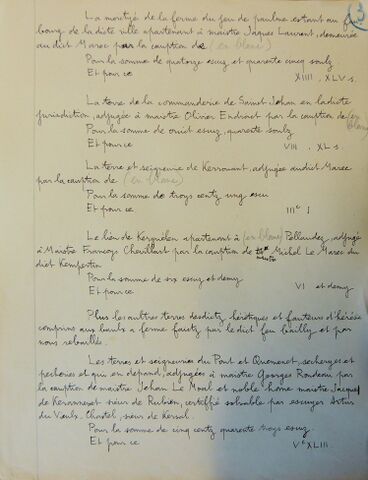 La moictyé de la ferme du jeu de paulme estant au fau-
bourg de la dicte ville apartenant à maistre Jaques Laurent, demeurée
audict Marec par la cauption de (en blanc)
Pour la somme de quatorze escuz et quarente cincq soulz
Et pour ce XIIII . XLV s.
La terre de la commanderie de Sainct Jehan en ladicte
jurisdiction, adjugée à maistre Olivier Endroict par la cauption de (en blanc)
Pour la somme de ouict escuz, quarente soulz
Et pour ce VIII . XL s.
La terre et seigneurie de Kerrouant, adjugée audict Marec
par la cauption de (en blanc)
Pour la somme de troys centz ung escu
Et pour ce IIIc I
Le lieu de Kerguélen apartenant à (en blanc) Pellaudez, adjugé
à Maistre Francoys Cheuillart par la cauption de maistre Michel Le Marec du
dict Kemperlin
Pour la somme de six escuz et demy
Et pour ce VI et demy
Plus les aultres terres desdictz hérétiques et fauteurs d'hérésie
comprins aux baulx a ferme faictz par le dict feu bailly, et par
nous rebaillés.
Les terres et seigneuries du Pont et Quemenet, secheryes et
pecheries et qui en depand, adjugées à maistre Georges Rondeau par
la cauption de maistre Jehan Le Moal et noble home maistre Jacques
de Keroumenet sieur de Rubien, certiffié solvable par escuyer Artur
du Vieulx-Chastel, sieur de Kersal.
Pour la somme de cinq centz quarente troys escuz.
Et pour ce Vc XLIII.